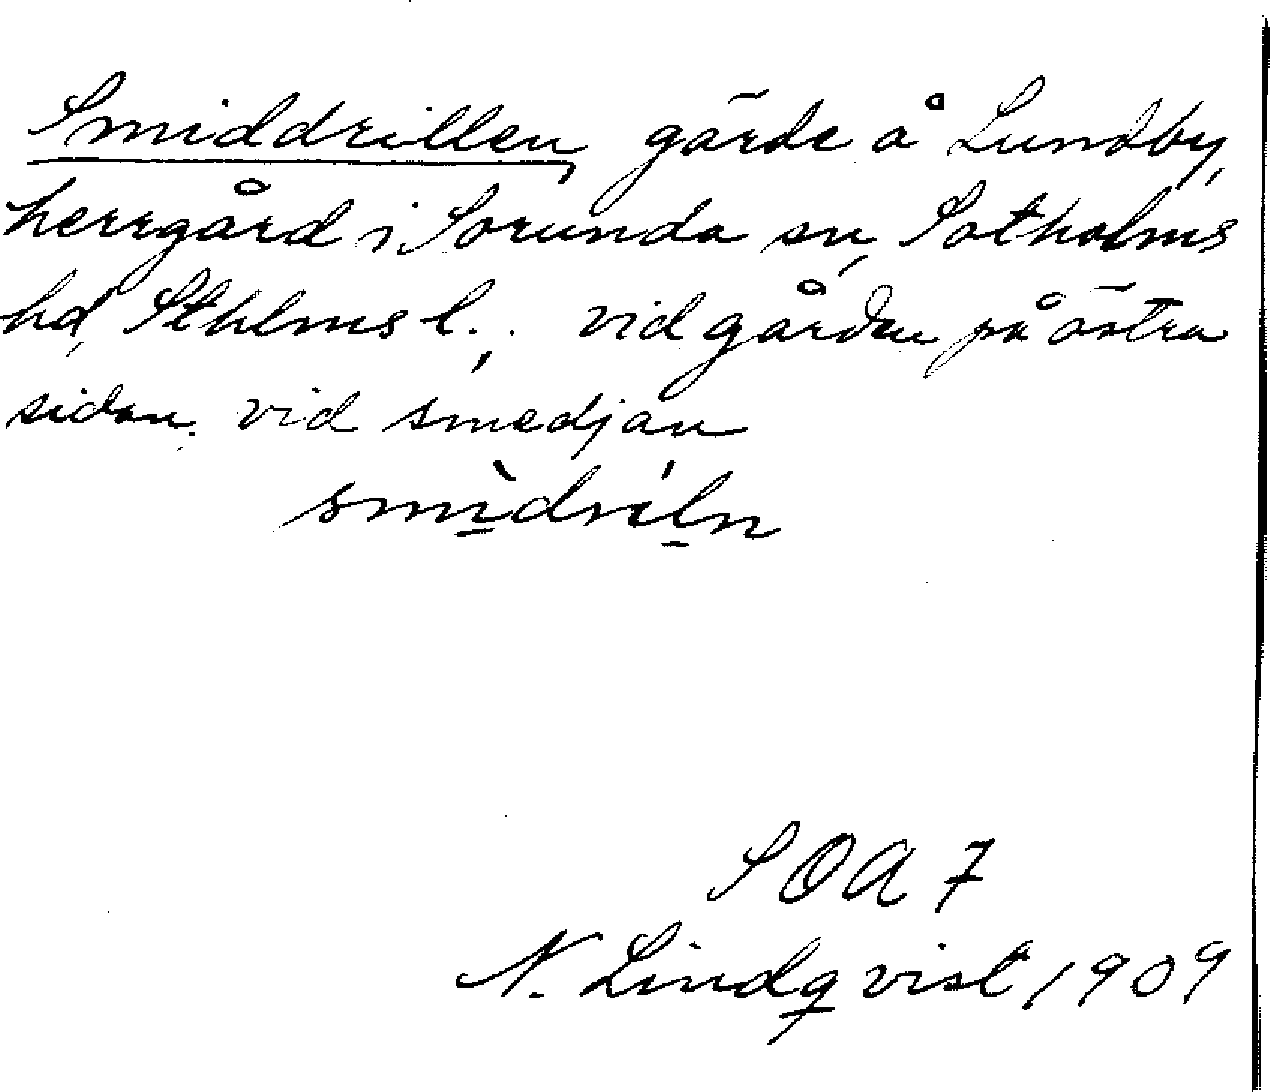 Smiddrillen, gärde å Lundby,
herrgård i Sorunda sn, Sotholms
hd, Sthlms l.; vid gården på östra
sidan. vid smedjan
smìdríln
SOA 7
N. Lindqvist, 1909